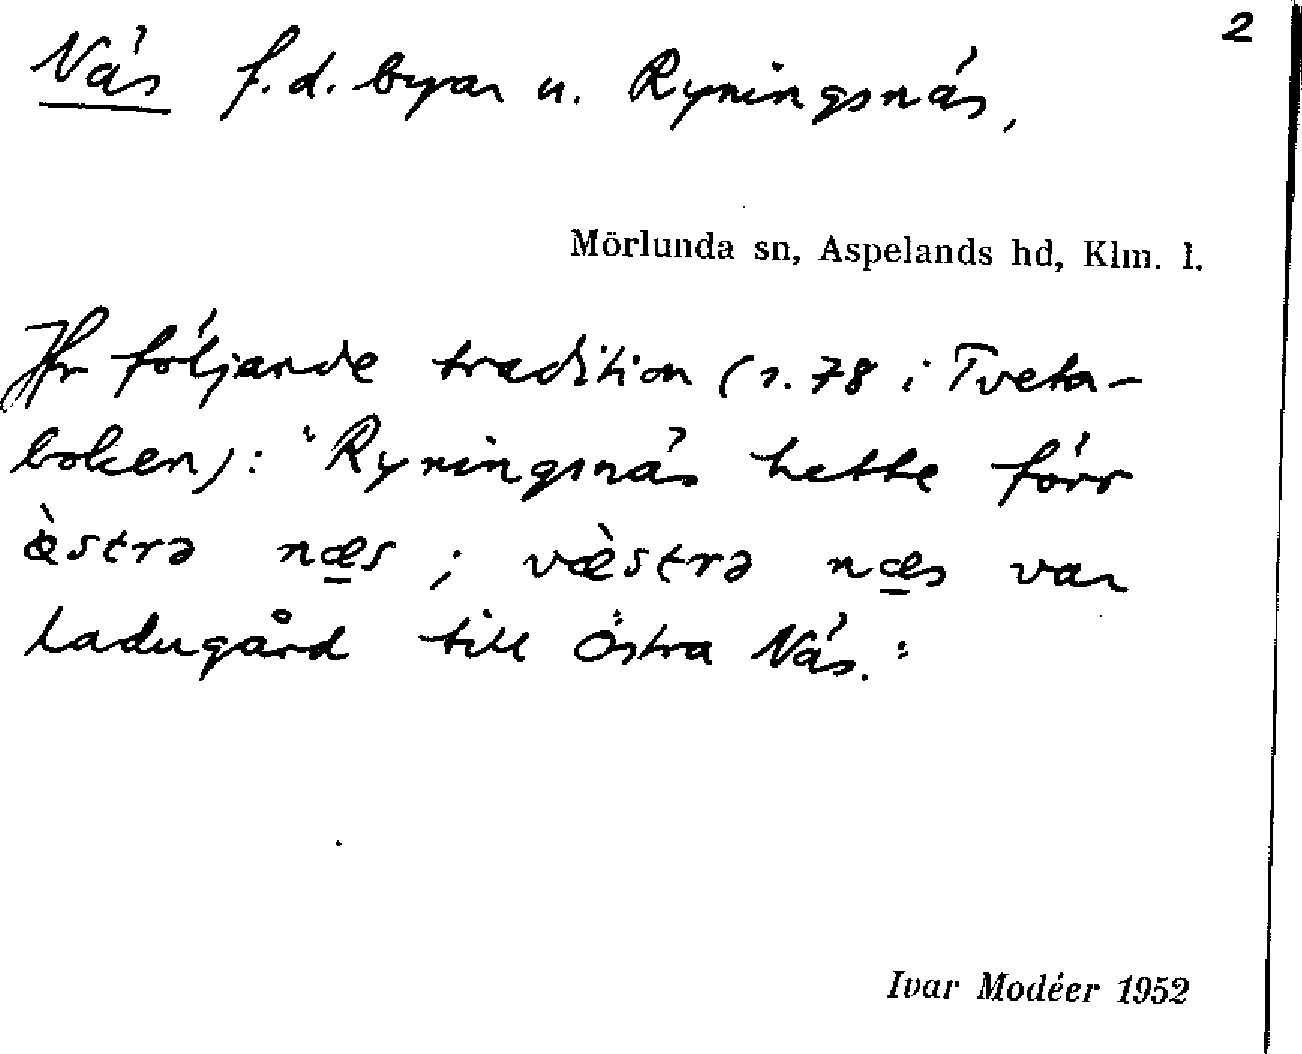 2
Näs f.d. byar u. Ryningsnäs,
Mörlunda sn, Aspelands hd, Klm. l.
Jfr följande tradition (s. 78 i Tveta-
boken): "Ryningsnäs hette förr
æ̀strə næ̲s ; væ̀strə næ̲s var
ladugård till Östra Näs."
Ivar Modéer 1952